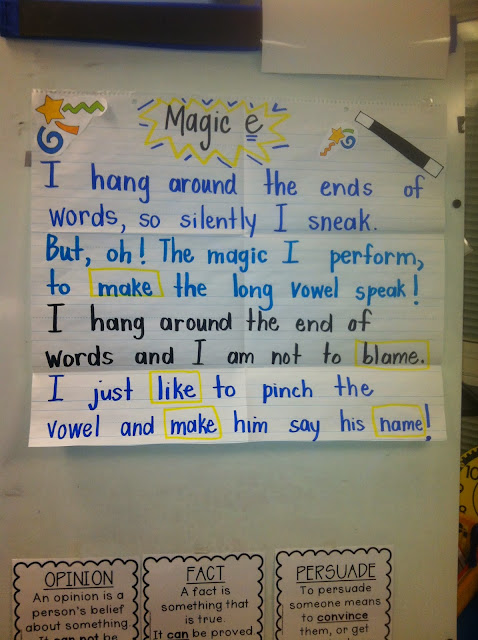 Magic e
I hang around the ends of
words, so silently I sneak.
But, oh! The magic I perform,
to make the long vowel speak!
I hang around the end of
words and I am not to blame.
I just like to pinch the
vowel and make him say his name!
OPINION
An opinion is a
person's belief
about something.
It can not be
FACT
A fact is
something that
is true.
It can be proved
PERSUADE
To persuade
someone means
to convince
them, or get
10